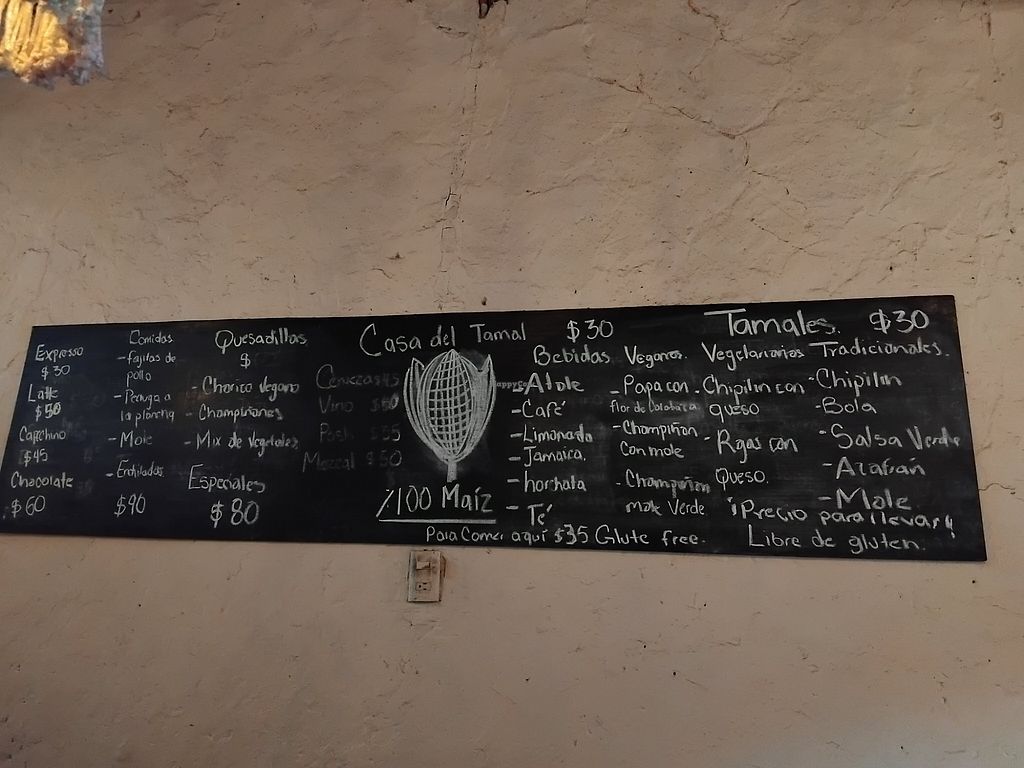 Expresso
$30
Latte
$50
Capechino
$45
Chocolate
$60
Comidas
- Fajitas de
pollo
- Pechuga a
la plancha
- Mole
- Enchiladas
$90
Quesadillas
$
- Choriso vegano
- Champiñones
- Mix de vegetales
Especiales
$80
Casa del Tamal
Cervezas
Vino $60
Posh $35
Mezcal $50
%100 Maíz
$30
Bebidas
- Atole
- Café
- Limonada
- Jamaica
- horchata
- Té
Tamales. $30
Veganos.
- Papa con
flor de Calabaca
- Champiñon
Con mole
- Champiñon
mole Verde
Vegetarianos
- Chipilin con
queso
- Rajas con
Queso.
Tradicionales.
- Chipilin
- Bola
- Salsa Verde
- Azafrán
- Mole
¡Precio para llevar!
Para Comer aquí $35 Glute free.
Libre de gluten.